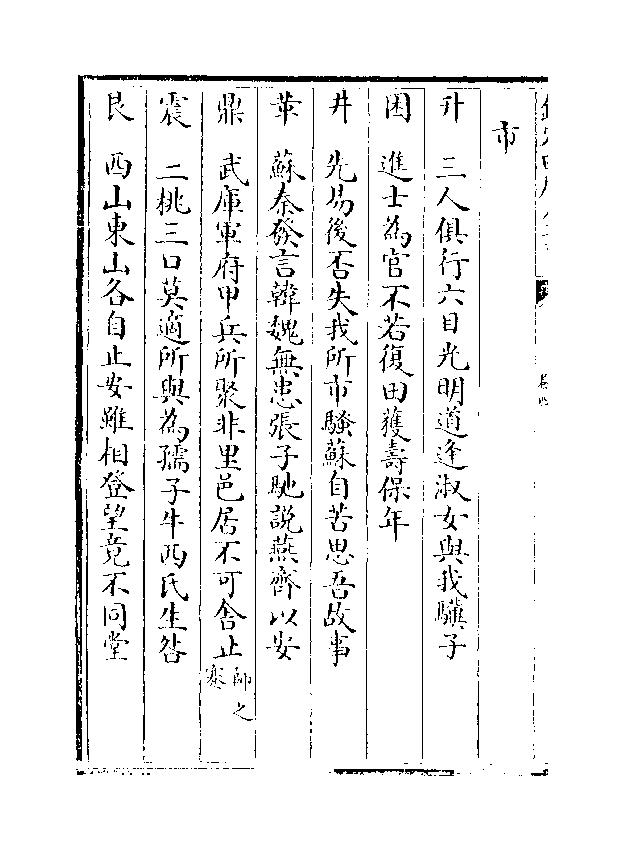 市
升　三人俱行六目光明道逢淑女與我驥子
困　進士為官不若復田獲壽保年
井　先易後否失我所市騷蘇自苦思吾故事
革　蘇秦發言韓魏無患張子馳說燕齊以安
鼎　武庫軍府甲兵所聚非里邑居不可舍止師之蹇
震　二桃三口莫適所與為孺子牛西氏生咎
艮　西山東山各自止安雖相登望竟不同堂